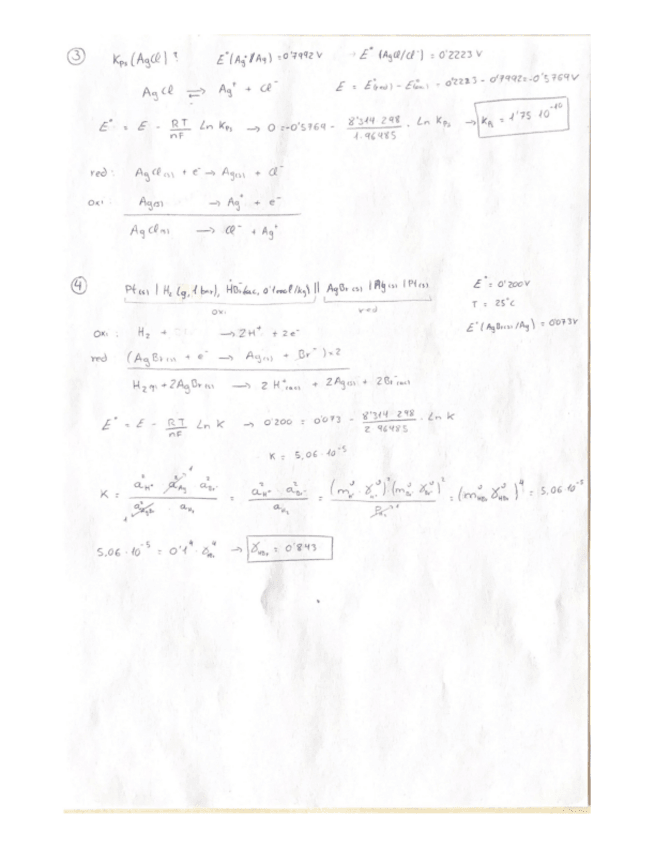 3 Kps (AgCl)? E°(Ag⁺/Ag) = 0'7992 V → E° (AgCl/Cl⁻) = 0'2223 V
AgCl ⇌ Ag⁺ + Cl⁻ E = E°(red) - E° = 0'2223 - 0'7992 = -0'5769 V
E° = E - RT/nF Ln Kps → 0 = -0'5769 - 8'314 298/1·96485 · Ln Kps → Kps = 1'75 10⁻¹⁰
red: AgCl(s) + e⁻ → Ag(s) + Cl⁻
oxi: Ag(s) → Ag⁺ + e⁻
AgCl(s) → Cl⁻ + Ag⁺
4 Pt(s) | H₂ (g, 1 bar), HBr(ac, 0'1 mol/kg) || AgBr(s) | Ag(s) | Pt(s) E° = 0'200 V
oxi red T = 25°C
oxi: H₂ + → 2H⁺ + 2e⁻ E°(AgBr(s)/Ag) = 0'073 V
red (AgBr(s) + e⁻ → Ag(s) + Br⁻) × 2
H₂(g) + 2AgBr(s) → 2H⁺(ac) + 2Ag(s) + 2Br⁻(ac)
E° = E - RT/nF Ln K → 0'200 = 0'073 - 8'314 298/2 96485 · Ln K
K = 5,06·10⁻⁵
K = a²H⁺ · a²Ag · a²Br⁻ / a²AgBr · aH₂ = a²H⁺ · a²Br⁻ / aH₂ = (m · γ)² (m · γ)² / P = (mHBr γHBr)⁴ = 5,06·10⁻⁵
5,06·10⁻⁵ = 0'1⁴ · γ⁴ → γHBr = 0'843